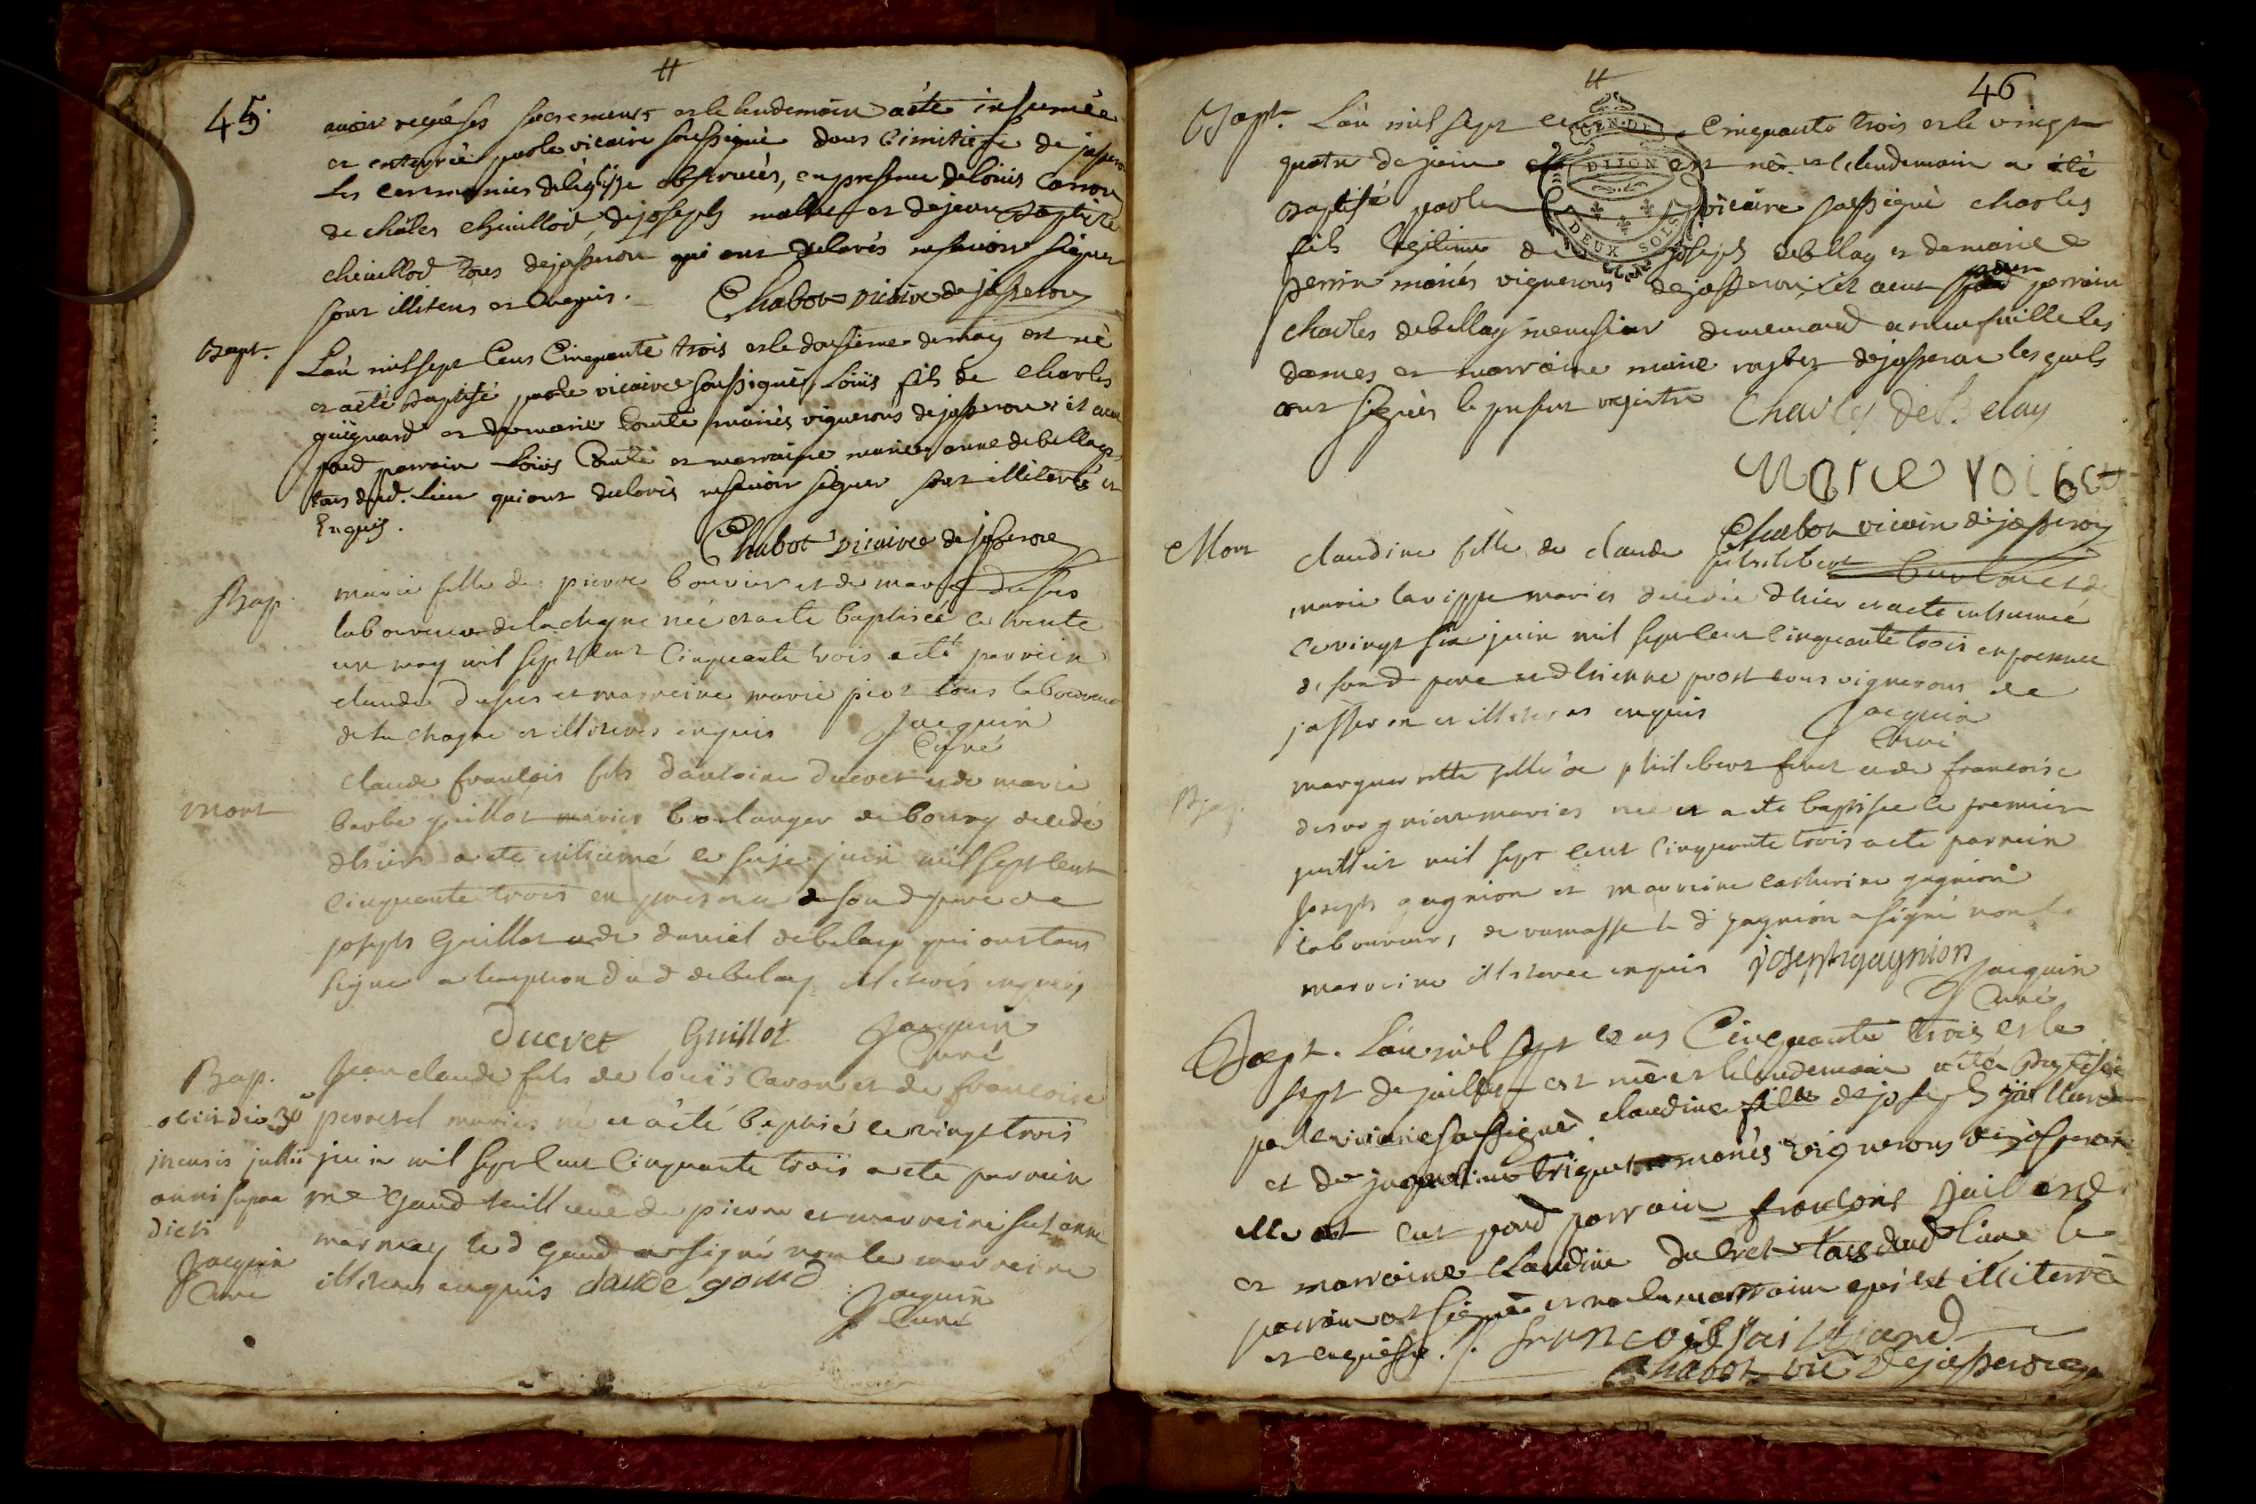 45
avoir reçu ses sacremens et le lendemain a été inhumée
et enterrée par le vicaire soussigné dans cimitiere de jasseron
les ceremonies de léglise observées, en presence de loüis Carron
de chales chevillod, de joseph et de jean baptiste
chevillod tous de jasseron qui ont declarés ne scavoir signer
sont illiteres et enquis. Chabot vicaire de jasseron
Bapt. L'an mil sept cens Cinquante trois et le douzieme de may est né
et a été baptisé par le vicaire soussigné Loüis fils de Charles
guignard et de marie Comte mariés vignerons de jasseron, il a eu
pour parrain Loüis Comte et marraine marie anne debellay
tous dud. Lieu qui ont declarés ne scavoir signer sont illiterés et
Enquis.
Chabot vicaire de jasseron
Bap. marie fille de pierre bouvier et de marie dufus
laboureur de la chagne née et a eté baptisée ce trente
un may mil sept cent Cinquante trois a eté parrein
claude dufus et marreine marie piot tous laboureurs
de la chagne et illiterés enquis Jacquin
Curé
mort claude francois fils d'antoine Ducret et de marie
barbe guillot mariés boulanger de bourg decedé
dhier a eté inhumé le juin mil sept cent
cinquante trois en presence de sond pere de
joseph Guillot et de daniel debelay qui ont tous
signé a lexception dud debelay illiterés enquis
Ducret Guillot Jacquin
Curé
Bap. Jean claude fils de louis Caron et de francoise
perret mariés né et a eté baptisé ce vingt trois
juin mil sept cent Cinquante trois a eté parrein
me Gaud de pierre et marreine susanne
marmey led Gaud a signé non la marreine
illiterée enquis claude goud Jacquin
Curé
obiit die 30
mensis julii
anni supra
dicti
Jacquin
Curé
46
GEN. DE DIJON
DEUX SOLS
Bapt. L'an mil sept cens Cinquante trois et le vingt
quatre de juin est né et le lendemain a été
Baptisé par le vicaire soussigné charles
fils legitime de joseph debellay et de marie
perrin mariés vignerons de jasseron, il a eu pour parrain
charles debellay menusier
dames et marraine marie de jasseron lesquels
ont signés le present registre Charles deBelay
Marie
Chabot vicaire de jasseron
Mort claudine fille de claude philibert
marie lavippe mariés decedée dhier et a eté inhumée
ce vingt six juin mil sept cent cinquante trois en presence
de sond pere et dhienne tous vignerons de
jasseron et illiterés enquis Jacquin
Curé
Bap. margueritte fille de philibert et de francoise
mariés née et a eté baptisée le premier
juillet mil sept cent cinquante trois a eté parrein
joseph gagnion et marreine catherine gagnion
laboureurs, de ramasse le d gagnion a signé non la
marreine illiterée enquis joseph gagnion Jacquin
Curé
Bapt. L'an mil sept cens Cinquante trois et le
sept de juillet est née et le lendemain a été Baptisée
par le vicaire soussigné claudine fille de joseph jaillard
et de jaqueline triquet mariés vignerons de jasseron
elle a eut pour parrain francois jaillard
et marraine Claudine Ducret tous dud lieu le
parrain a signé et non la marraine qui est illiterée
et enquise. francois Jailliard
Chabot vic de jasseron